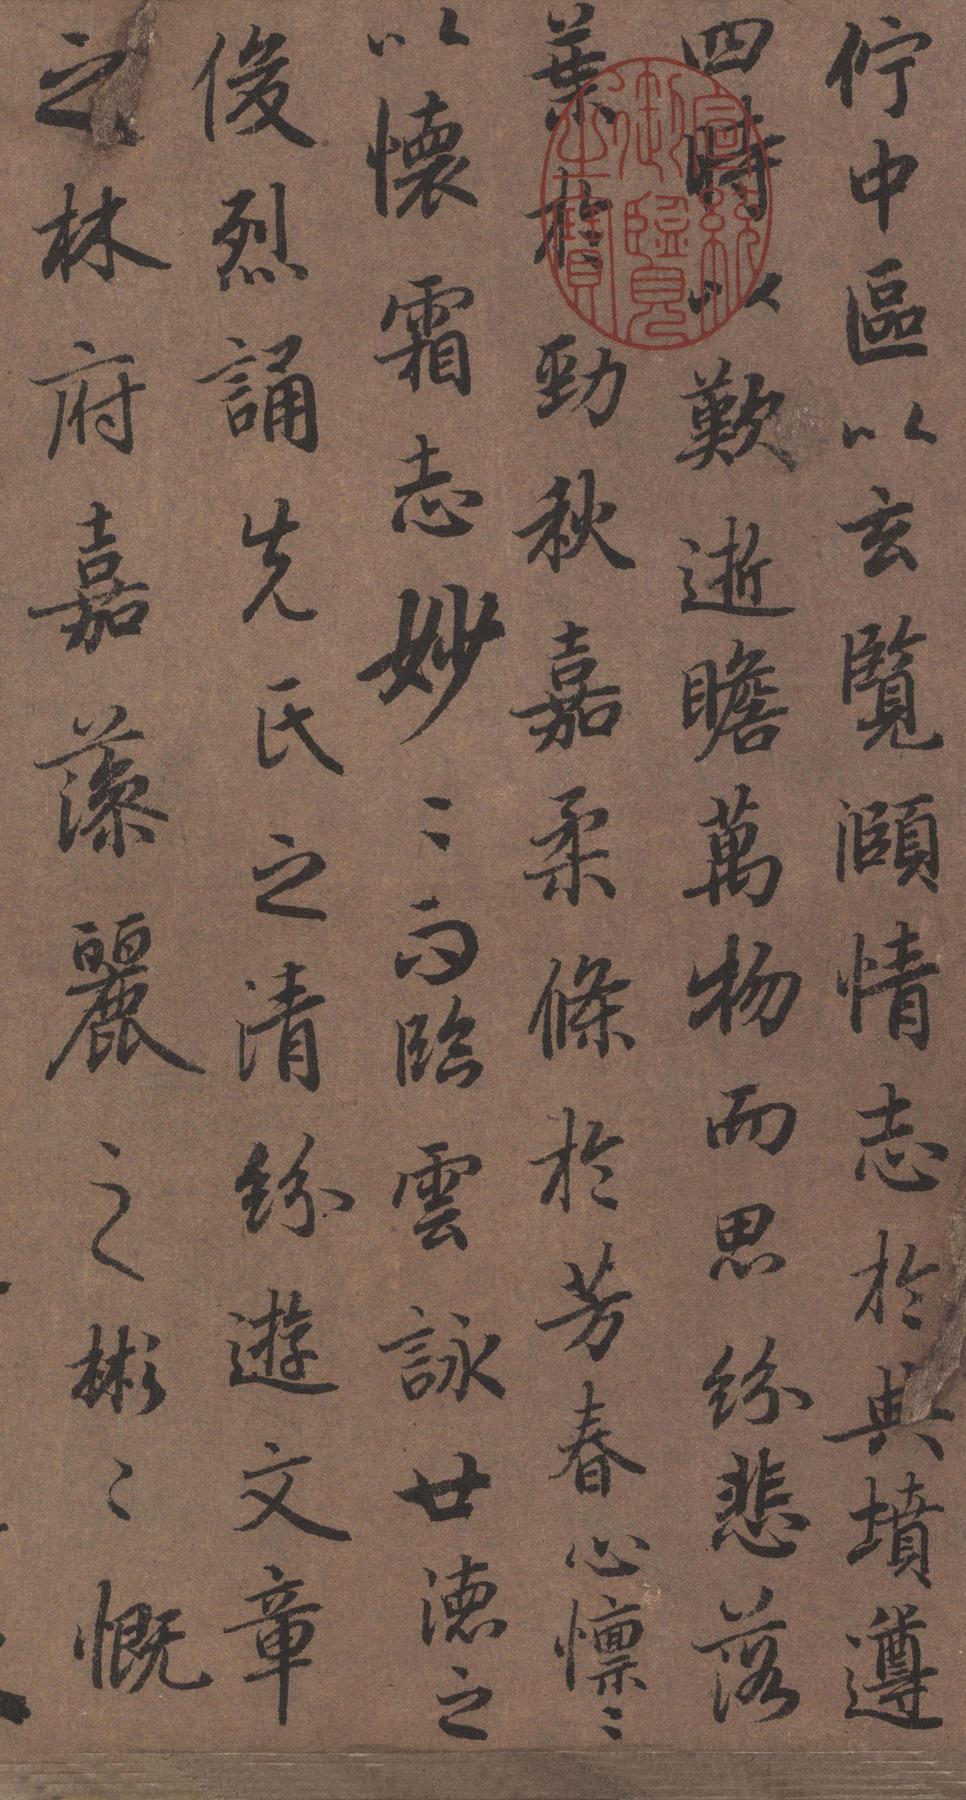 佇中區以玄覽頤情志於典墳遵
四時以歎逝瞻萬物而思紛悲落
葉於勁秋嘉柔條於芳春心懍〻
以懷霜志妙〻而臨雲詠世德之
俊烈誦先民之清紛遊文章
之林府嘉藻麗之彬〻慨
宣統御覽之寶